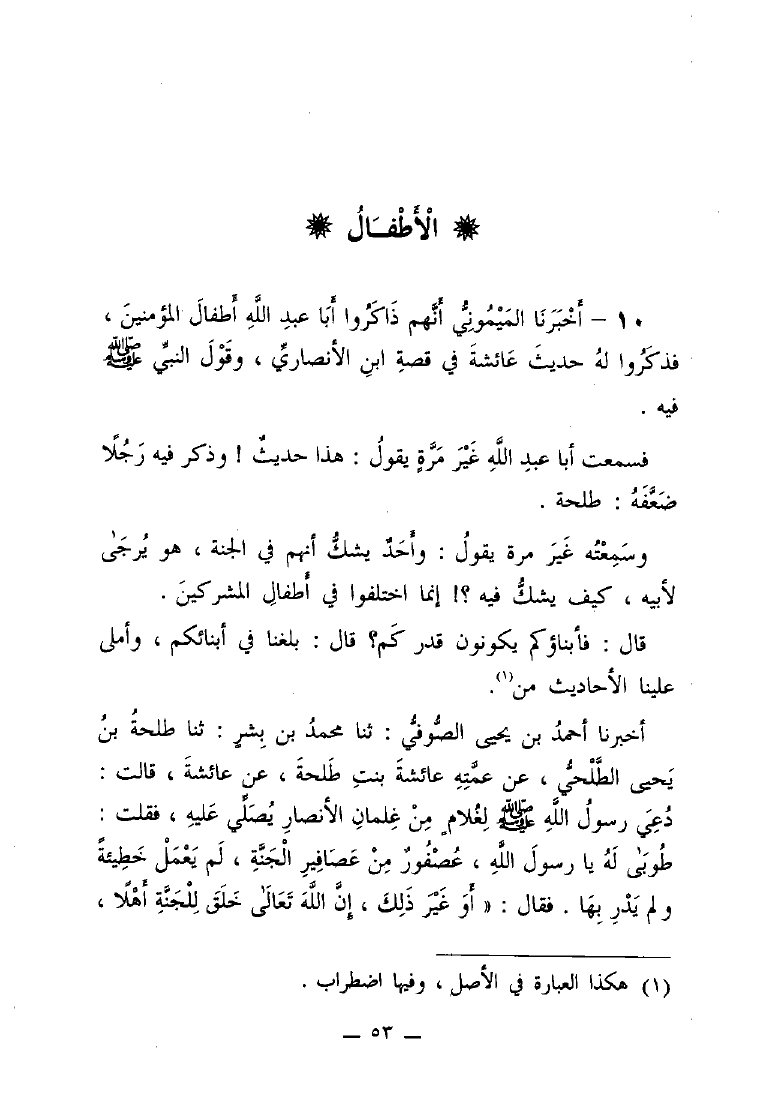 الْأَطْفَالُ
١٠ – أَخْبَرَنَا المَيْمُونِيُّ أَنَّهم ذَاكَرُوا أَبَا عبدِ اللَّهِ أَطفالَ المؤمنينَ ،
فذكَرُوا لهُ حديثَ عَائشةَ في قصةِ ابنِ الأنصاريِّ ، وقَوْلَ النبيِّ ﷺ
فيه .
فسمعت أبا عبدِ اللَّهِ غَيْرَ مَرَّةٍ يقولُ : هذا حديثٌ ! وذكر فيه رَجُلًا
ضَعَّفَهُ : طلحة .
وسَمِعْتُه غَيرَ مرة يقولُ : وأَحَدٌ يشكُّ أنهم في الجنة ، هو يُرجَىٰ
لأبيه ، كيف يشكُّ فيه ؟! إنما اختلفوا في أَطفالِ المشركينَ .
قال : فأبناؤكم يكونون قدر كَم؟ قال : بلغنا في أبنائكم ، وأملى
علينا الأحاديث من(١).
أخبرنا أحمدُ بن يحيى الصُّوفيُّ : ثنا محمدُ بن بِشرٍ : ثنا طلحةُ بنُ
يَحيى الطَّلْحيُّ ، عن عمَّتِهِ عائشةَ بنتِ طَلحةَ ، عن عائشةَ ، قالت :
دُعِيَ رسولُ اللَّهِ ﷺ لِغُلامٍ مِنْ غِلمانِ الأنصارِ يُصَلِّي عَليهِ ، فقلت :
طُوبَىٰ لَهُ يا رسولَ اللَّهِ ، عُصْفُورٌ مِنْ عَصَافيرِ الْجَنَّةِ ، لَم يَعْمَلْ خَطِيئةً
ولم يَدْرِ بِهَا . فقال : « أَوَ غَيْرَ ذَلِكَ ، إِنَّ اللَّهَ تَعَالَىٰ خَلَقَ لِلْجَنَّةِ أَهْلًا ،
(١) هكذا العبارة في الأصل ، وفيها اضطراب .
— ٥٣ —